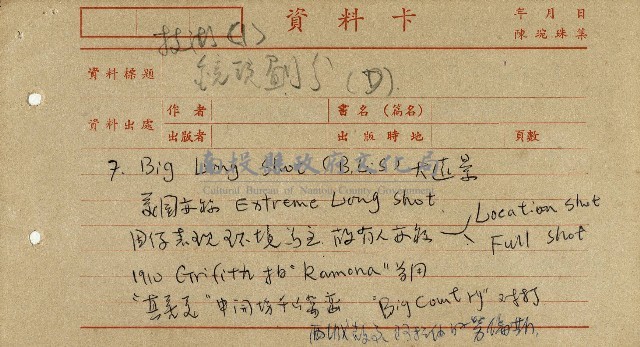 資料卡
年月日
陳琬珠集
技術(1)
資料標題
鏡頭劃分(D).
資料出處
作者
書名(篇名)
出版者
出版時地
頁數
南投縣政府文化局
Cultural Bureau of Nantou County Government
7. Big Long Shot (B.L.S) 大遠景
美國亦稱 Extreme Long shot
用行表現環境為主 故有人亦稱
Location shot
Full shot
1910 Griffith 拍"Ramona"首用
"Big Country" 對打